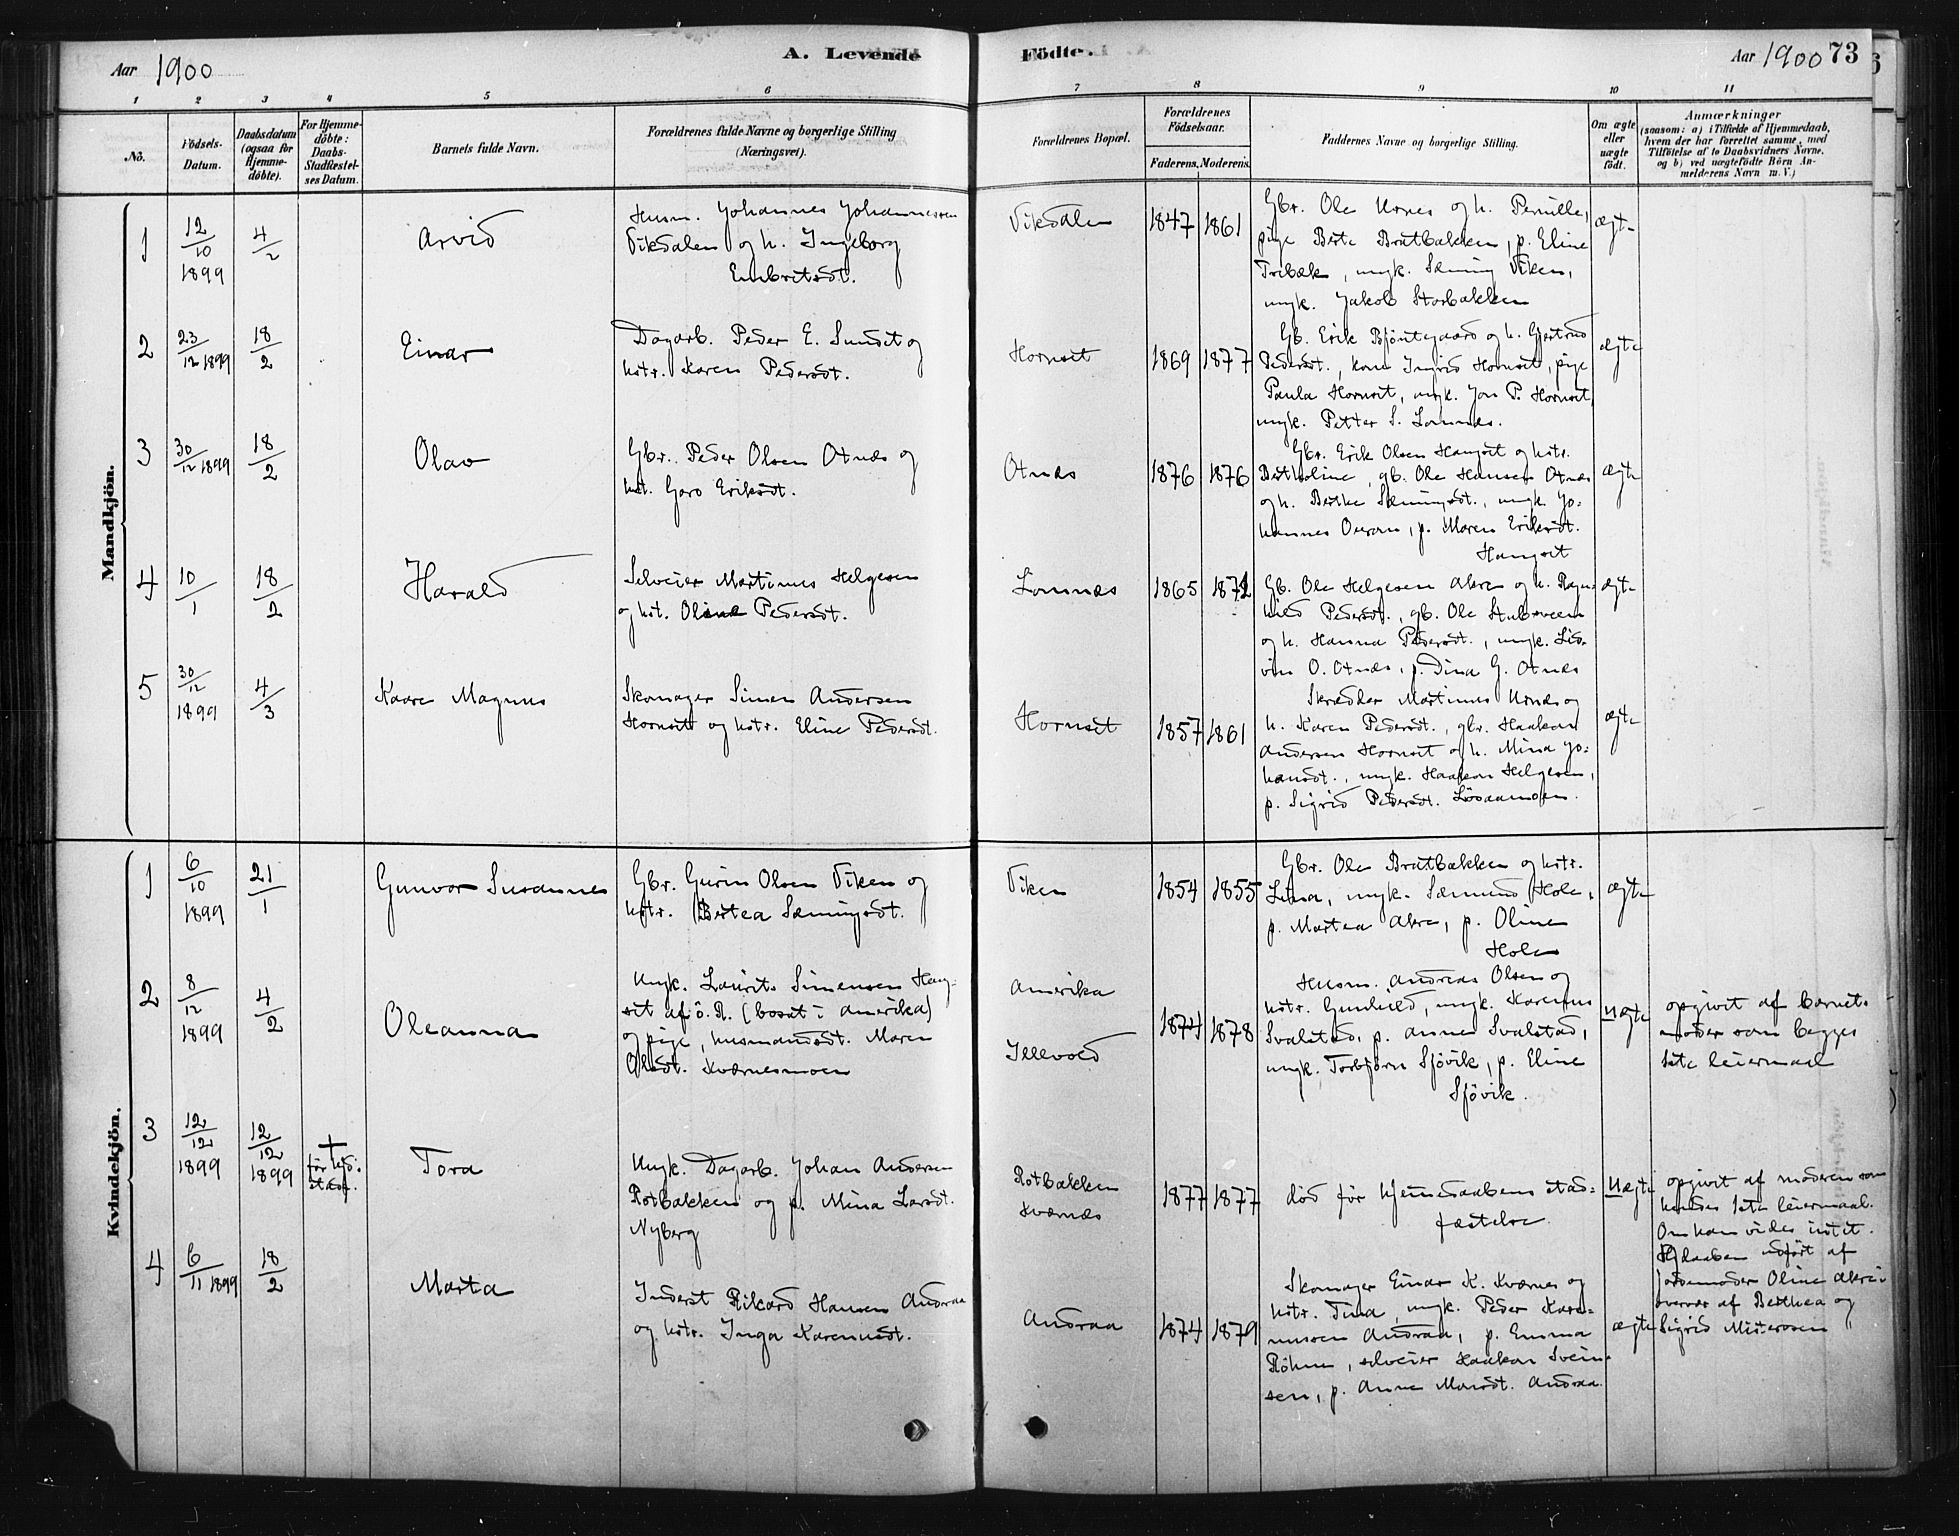 Aar 1900
A. Levende
Födte.
Aar 1900 73
1 2 3 4 5 6 7 8 9 10 11
No.
Födsels-
Datum.
Daabsdatum
(ogsaa for
Hjemme-
döbte).
For Hjemme-
döbte:
Daabs-
Stadfæstel-
ses Datum.
Barnets fulde Navn.
Forældrenes fulde Navne og borgerlige Stilling
(Næringsvei).
Forældrenes Bopæl.
Forældrenes
Födselsaar.
Faderens. Moderens.
Faddernes Navne og borgerlige Stilling.
Om ægte
eller
uægte
födt.
Anmærkninger
(saasom: a) i Tilfælde af Hjemmedaab,
hvem der har forrettet samme, med
Tilföielse af to Daabsvidners Navne,
og b) ved uægtefödte Börn An-
melderens Navn m. V.)
Mandkjön.
1
12/10
1899
4/2
Arvid
Husm. Johannes Johannessen
Viksdalen og h. Ingeborg
Embretsdt.
Viksdalen
1847 1861
Gbr. Ole Urnes og h. Pernille,
pige Berte Bratbakken, p. Eline
Trebæk, ungk. Sæming Viken,
ungk. Jakob Storbakken
ægte
2
23/12 1899
18/2
Einar
Dagarb. Peder E. Sundet og
hstr. Karen Pedersdt.
Hornset
1869 1877
Gb. Erik Bjöntegaard og h. Gjertrud
Pedersdt., kone Ingrid Hornset, pige
Paula Hornset, ungk. Jon P. Hornset,
ungk. Petter S. Lomnes.
ægte
3
30/12 1899
18/2
Olav
Gbr. Peder Olsen Otnes og
hst. Goro Eriksdt.
Otnes
1876 1876
Gbr. Erik Olsen Hangset og hstr.
Bertholine, gb. Ole Hansen Otnes
og h. Berthe Sæmingsdt., ungk. Jo-
hannes Oueran, p. Maren Eriksdt.
Hangset
ægte
4
10/1
18/2
Harald
Selveier Martinus Helgesen
og hst. Oline Pedersdt.
Lomnes
1865 1872
Gb. Ole Helgesen Akre og h. Ragn-
hild Pedersdt., gb. Ole Stubsveen
og h. Hanna Pedersdt., ungk. Lid-
vin O. Otnes, p. Dina G. Otnes
ægte
5
30/12
1899
4/3
Kaare Magnus
Skomager Simen Andersen
Hornset og hstr. Eline Pedersdt.
Hornset
1857 1861
Skrædder Martinus Urnes og
h. Karen Pedersdt., gbr. Haakon
Andersen Hornset og h. Mina Jo-
hansdt., ungk. Haakon Helgesen,
p. Sigrid Pedersdt. Lösaamoen.
ægte
Kvindekjön.
1
6/10
1899
21/1
Gunvor Susannes
Gbr. Guren Olsen Viken og
hstr. Bertea Sæmingsdt.
Viken
1854 1855
Gbr. Ole Bratbakken og hstr.
Lina, ungk. Sæmund Hole,
p. Martea Akre, p. Oline
Hole
ægte
2
8/12
1899
4/2
Oleanna
Ungk. Laurits Simensen Hang-
set af ö. R. (bosat i Amerika)
og pige, husmandsdt. Maren
Olsdt. Kværnesmoen
Amerika
Illevold
1874 1878
Husm. Andreas Olsen og
hstr. Gunhild, ungk. Karenus
Svalstad, p. Anne Svalstad,
ungk. Torbjörn Sjövik, p. Eline
Sjövik.
uægte
opgivet af barnets
moder som begges
1ste leiermaal
3
12/12
1899
12/12
1899
+
før hjd.
stadf.
Tora
Ungk. Dagarb. Johan Andersen
Rotbakken og p. Mina Larsdt.
Nyberg
Rotbakken
Kværnes
1877 1877
död før hjemmedaabens stad-
fæstelse.
uægte
opgivet af moderen som
hendes 1ste leiermaal.
Om ham vides intet.
Hjdaaben udført af
jordemoder Oline Akre i
overvær af Berthea og
Sigrid Misterosen
4
6/11 1899
18/2
Marta
Inderst Rikard Hansen Andraa
og hstr. Inga Karenusdt.
Andraa
1874 1879
Skomager Einar K. Kværnes og
hstr. Tina, ungk. Peder Kare-
nussen Andraa, p. Emma
Röhne, selveier Haakon Svein-
sen, p. Anne Marsdt. Andraa.
ægte